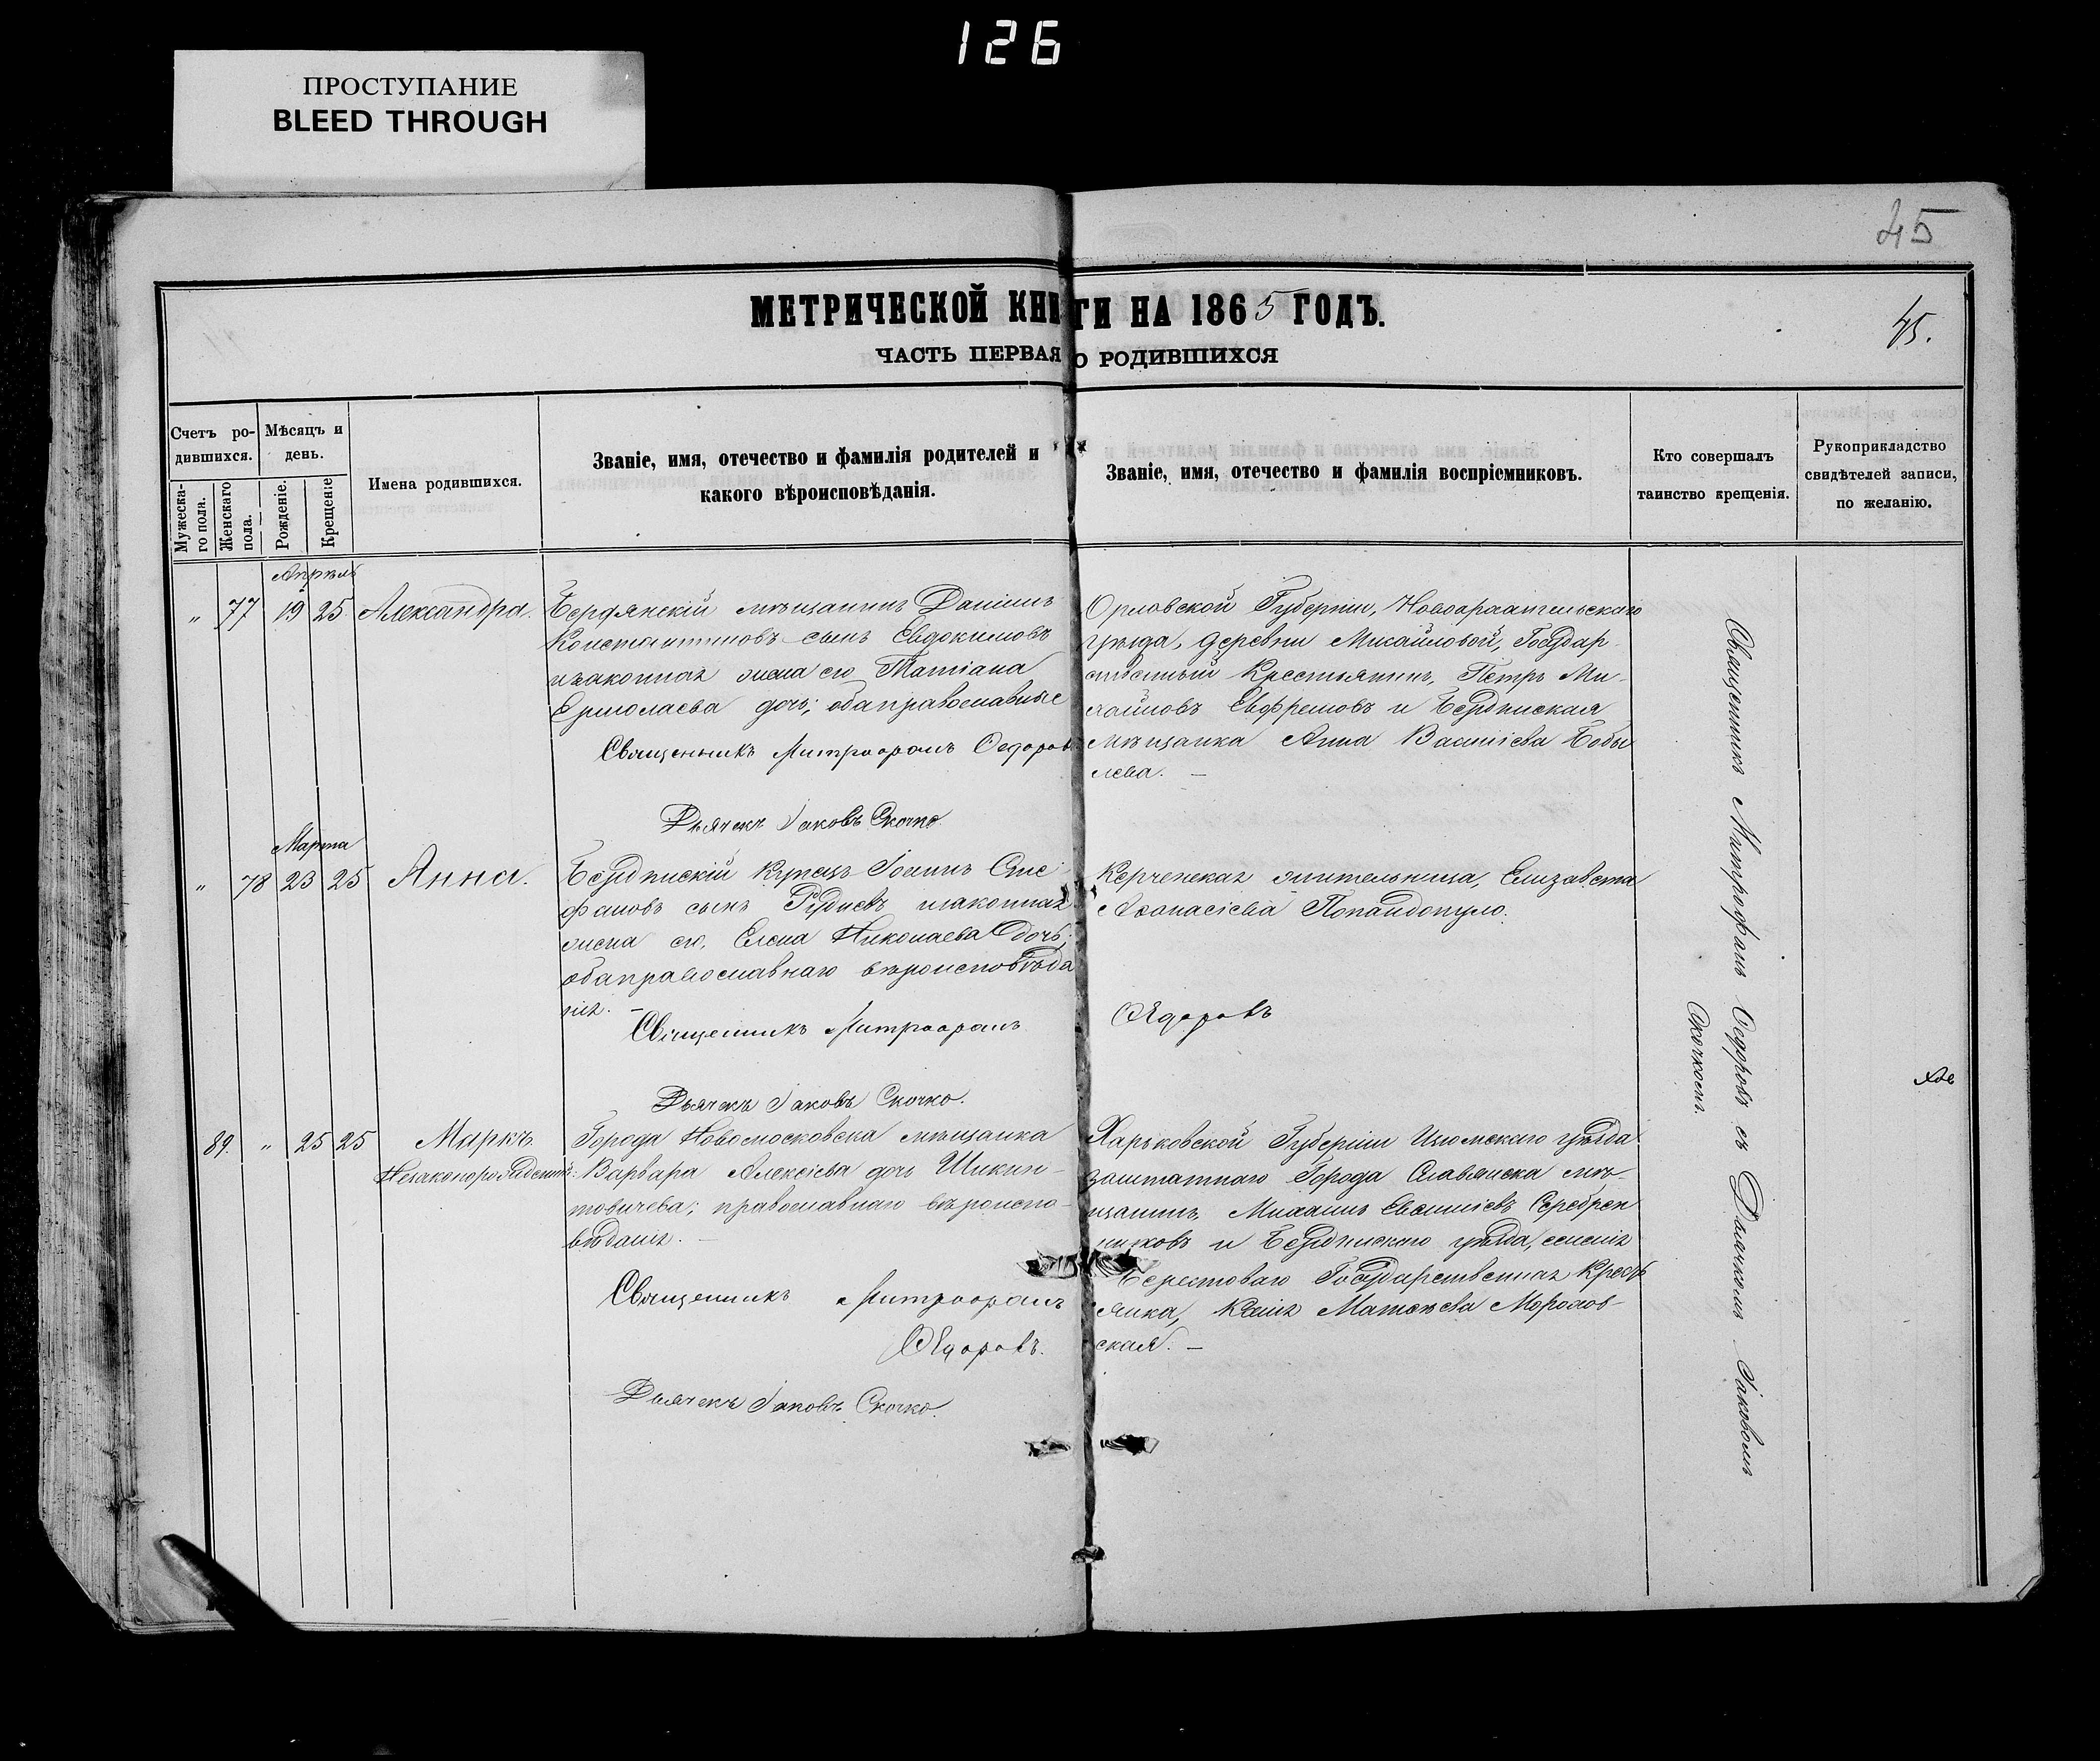 126
ПРОСТУПАНИЕ
BLEED THROUGH
45
МЕТРИЧЕСКОЙ КНИГИ НА 1865 ГОДЪ.
45.
ЧАСТЬ ПЕРВАЯ О РОДИВШИХСЯ
Счетъ ро-
дившихся.
Мужеска-
го пола.
Женскаго
пола.
Мѣсяцъ и
день.
Рожденіе.
Крещеніе
Имена родившихся.
Званіе, имя, отечество и фамилія родителей и
какого вѣроисповѣданія.
Званіе, имя, отечество и фамилія воспріемниковъ.
Кто совершалъ
таинство крещенія.
Рукоприкладство
свидѣтелей записи,
по желанію.
Апрѣль
" 77 19 25 Александра.
Бердянскій мѣщанинъ Даніилъ
Константиновъ сынъ Евдокимовъ
и законная жена его Татіана
Ермолаева дочь; оба православные
Священникъ Митрофанъ Ѳедоровъ
Дьячекъ Іаковъ Скочко
Орловской Губерніи, Новоархангельскаго
уѣзда, деревни Михайловой, Государ-
ственный Крестьянинъ, Петръ Ми-
хайловъ Евфремовъ и Бердянская
мѣщанка Анна Василіева Бобы
лева. —
Марта
" 78 23 25 Анна.
Бердянскій Купецъ Іоаннъ Сте-
фановъ сынъ Рудневъ и законная
жена его, Елена Николаева дочь;
оба православнаго вѣроисповѣда
нія. —
Священникъ Митрофанъ
Ѳедоровъ
Дьячекъ Іаковъ Скочко.
Керченская жительница, Елизавета
Аѳонасіева Попандопуло.
89. " 25 25 Маркъ
Незаконорожденный:
Города Новомосковска мѣщанка
Варвара Алексіева дочь Шикин-
товичева; православнаго вѣроиспо-
вѣданія. —
Священникъ Митрофанъ
Ѳедоровъ.
Дьячекъ Іаковъ Скочко.
Харьковской Губерніи Изюмскаго уѣзда
заштатнаго Города Славянска мѣ-
щанинъ, Михаилъ Евсигніевъ Серебрен
никовъ и Бердянскаго уѣзда, селенія
Берестоваго Государственная Кресть
янка, Ксенія Матѳеева Морозов-
ская. —
Священникъ Митрофанъ Ѳедоровъ съ Дьячкомъ Іаковомъ
Скочкомъ.